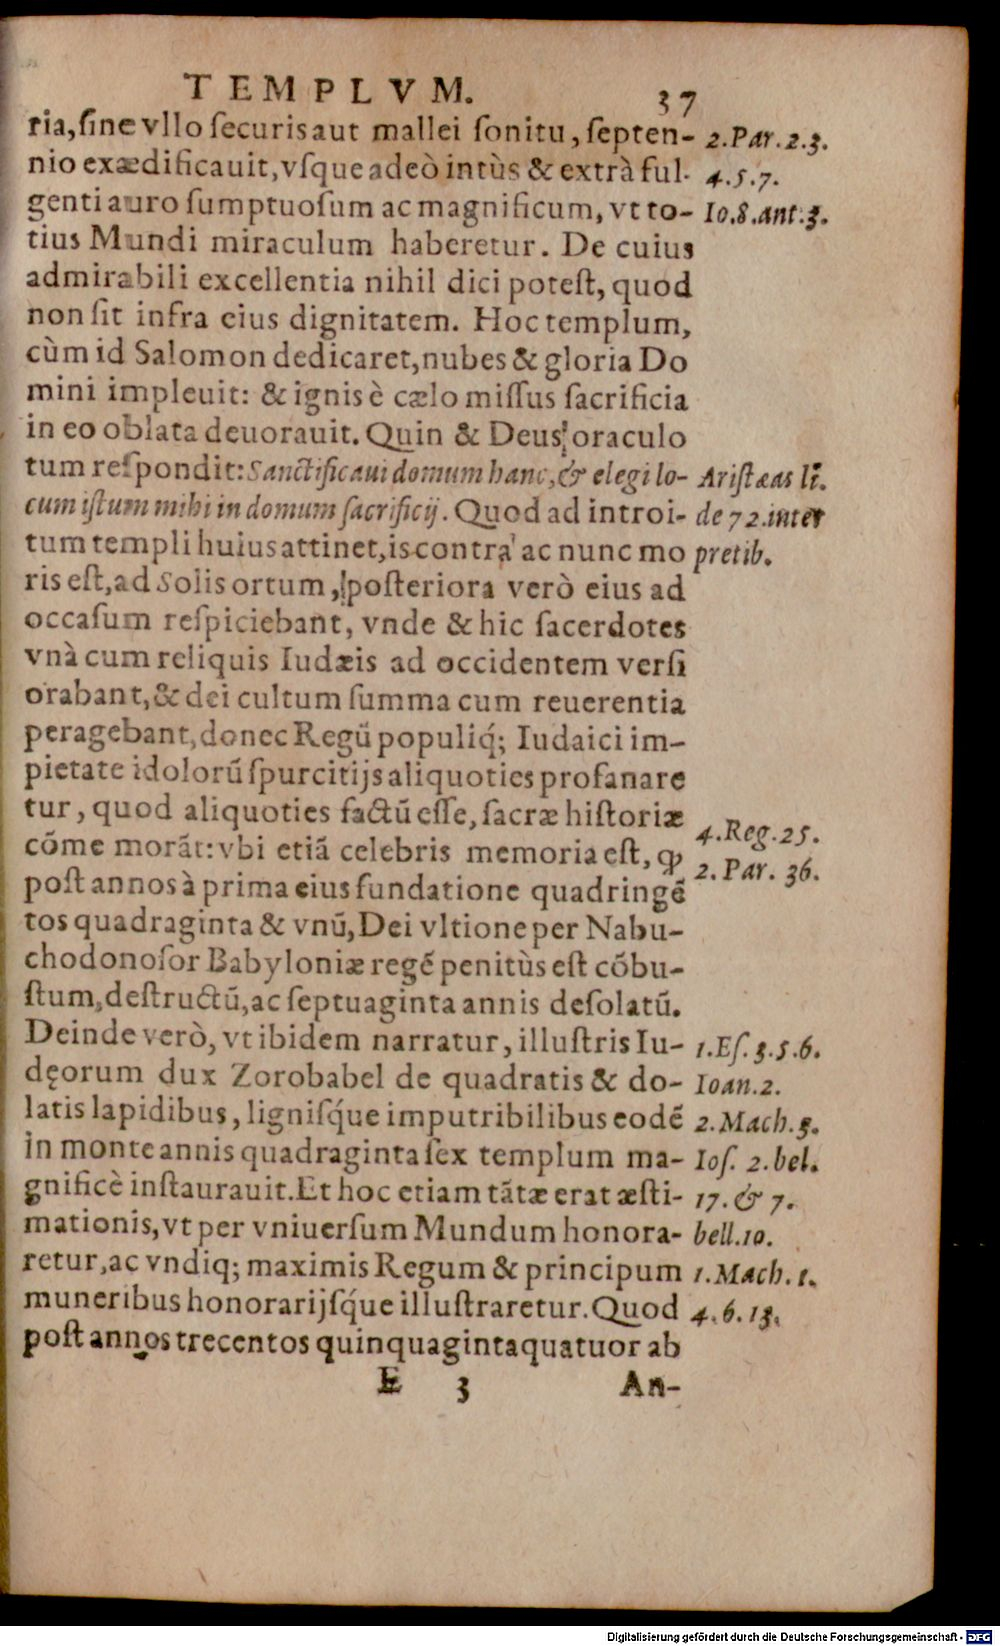 TEMPLVM. 37
ria, ſine vllo ſecuris aut mallei ſonitu, ſepten- 2. Par. 2. 3.
nio exædificauit, vſque adeò intùs & extrà ful- 4. 5. 7.
genti auro ſumptuoſum ac magnificum, vt to- Io. 8. ant. 3.
tius Mundi miraculum haberetur. De cuius
admirabili excellentia nihil dici poteſt, quod
non ſit infra eius dignitatem. Hoc templum,
cùm id Salomon dedicaret, nubes & gloria Do
mini impleuit: & ignis è cælo miſſus ſacrificia
in eo oblata deuorauit. Quin & Deus oraculo
tum reſpondit: Sanctificaui domum hanc, & elegi lo- Ariſtæas li.
cum iſtum mihi in domum ſacrificij. Quod ad introi- de 72. inter
tum templi huius attinet, is contra ac nunc mo pretib.
ris eſt, ad Solis ortum, poſteriora verò eius ad
occaſum reſpiciebant, vnde & hic ſacerdotes
vnà cum reliquis Iudæis ad occidentem verſi
orabant, & dei cultum ſumma cum reuerentia
peragebant, donec Regū populiq́; Iudaici im-
pietate idolorū ſpurcitijs aliquoties profanare
tur, quod aliquoties factū eſſe, ſacræ hiſtoriæ
cōme morāt: vbi etiā celebris memoria eſt, ꝙ 4. Reg. 25.
poſt annos à prima eius fundatione quadringē 2. Par. 36.
tos quadraginta & vnū, Dei vltione per Nabu-
chodonoſor Babyloniæ regē penitùs eſt cōbu-
ſtum, deſtructū, ac ſeptuaginta annis deſolatū.
Deinde verò, vt ibidem narratur, illuſtris Iu- 1. Eſ. 3. 5. 6.
dęorum dux Zorobabel de quadratis & do- Ioan. 2.
latis lapidibus, ligniſq́ue imputribilibus eodē 2. Mach. 5.
in monte annis quadraginta ſex templum ma- Ioſ. 2. bel.
gnificè inſtaurauit. Et hoc etiam tātæ erat æſti- 17. & 7.
mationis, vt per vniuerſum Mundum honora- bell. 10.
retur, ac vndiq; maximis Regum & principum 1. Mach. 1.
muneribus honorarijſq́ue illuſtraretur. Quod 4. 6. 13.
poſt annos trecentos quinquaginta quatuor ab
E 3 An-
Digitalisierung gefördert durch die Deutsche Forschungsgemeinschaft - DFG